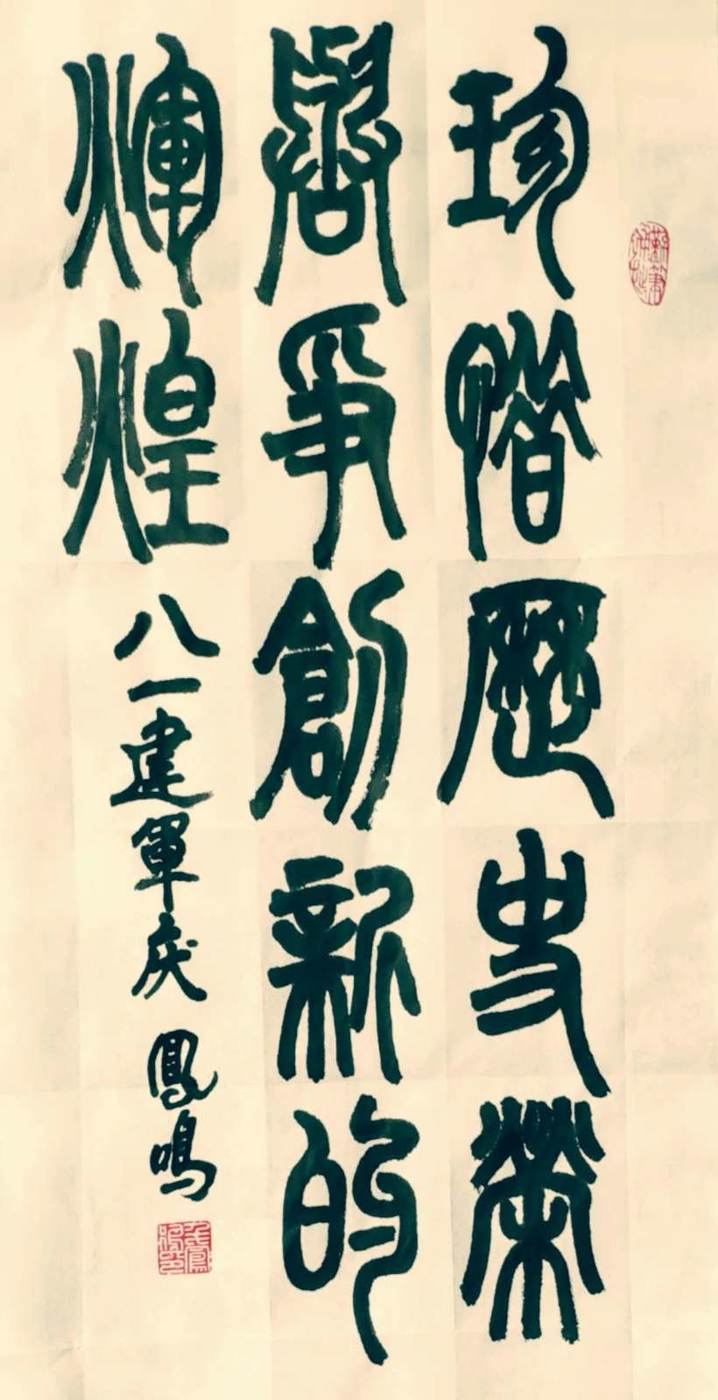 珍惜歷史榮
譽爭創新的
輝煌
八一建軍庆 鳳鳴